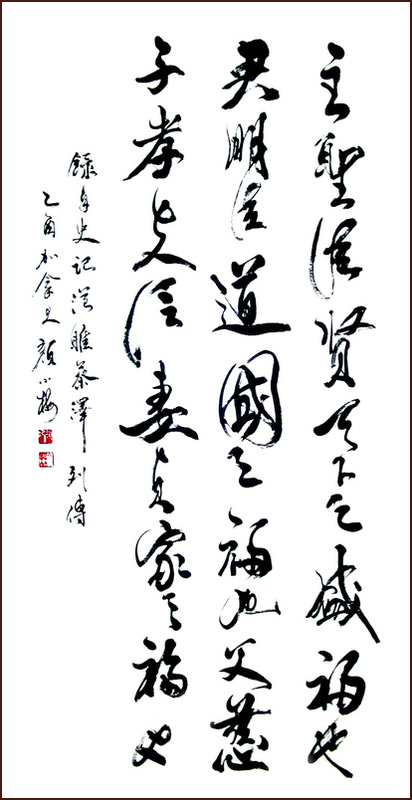 主聖臣賢天下之盛福也
君明臣道國之福也父慈
子孝夫信妻貞家之福也
錄自史記范睢蔡澤列傳
乙酉加拿大顏小梅